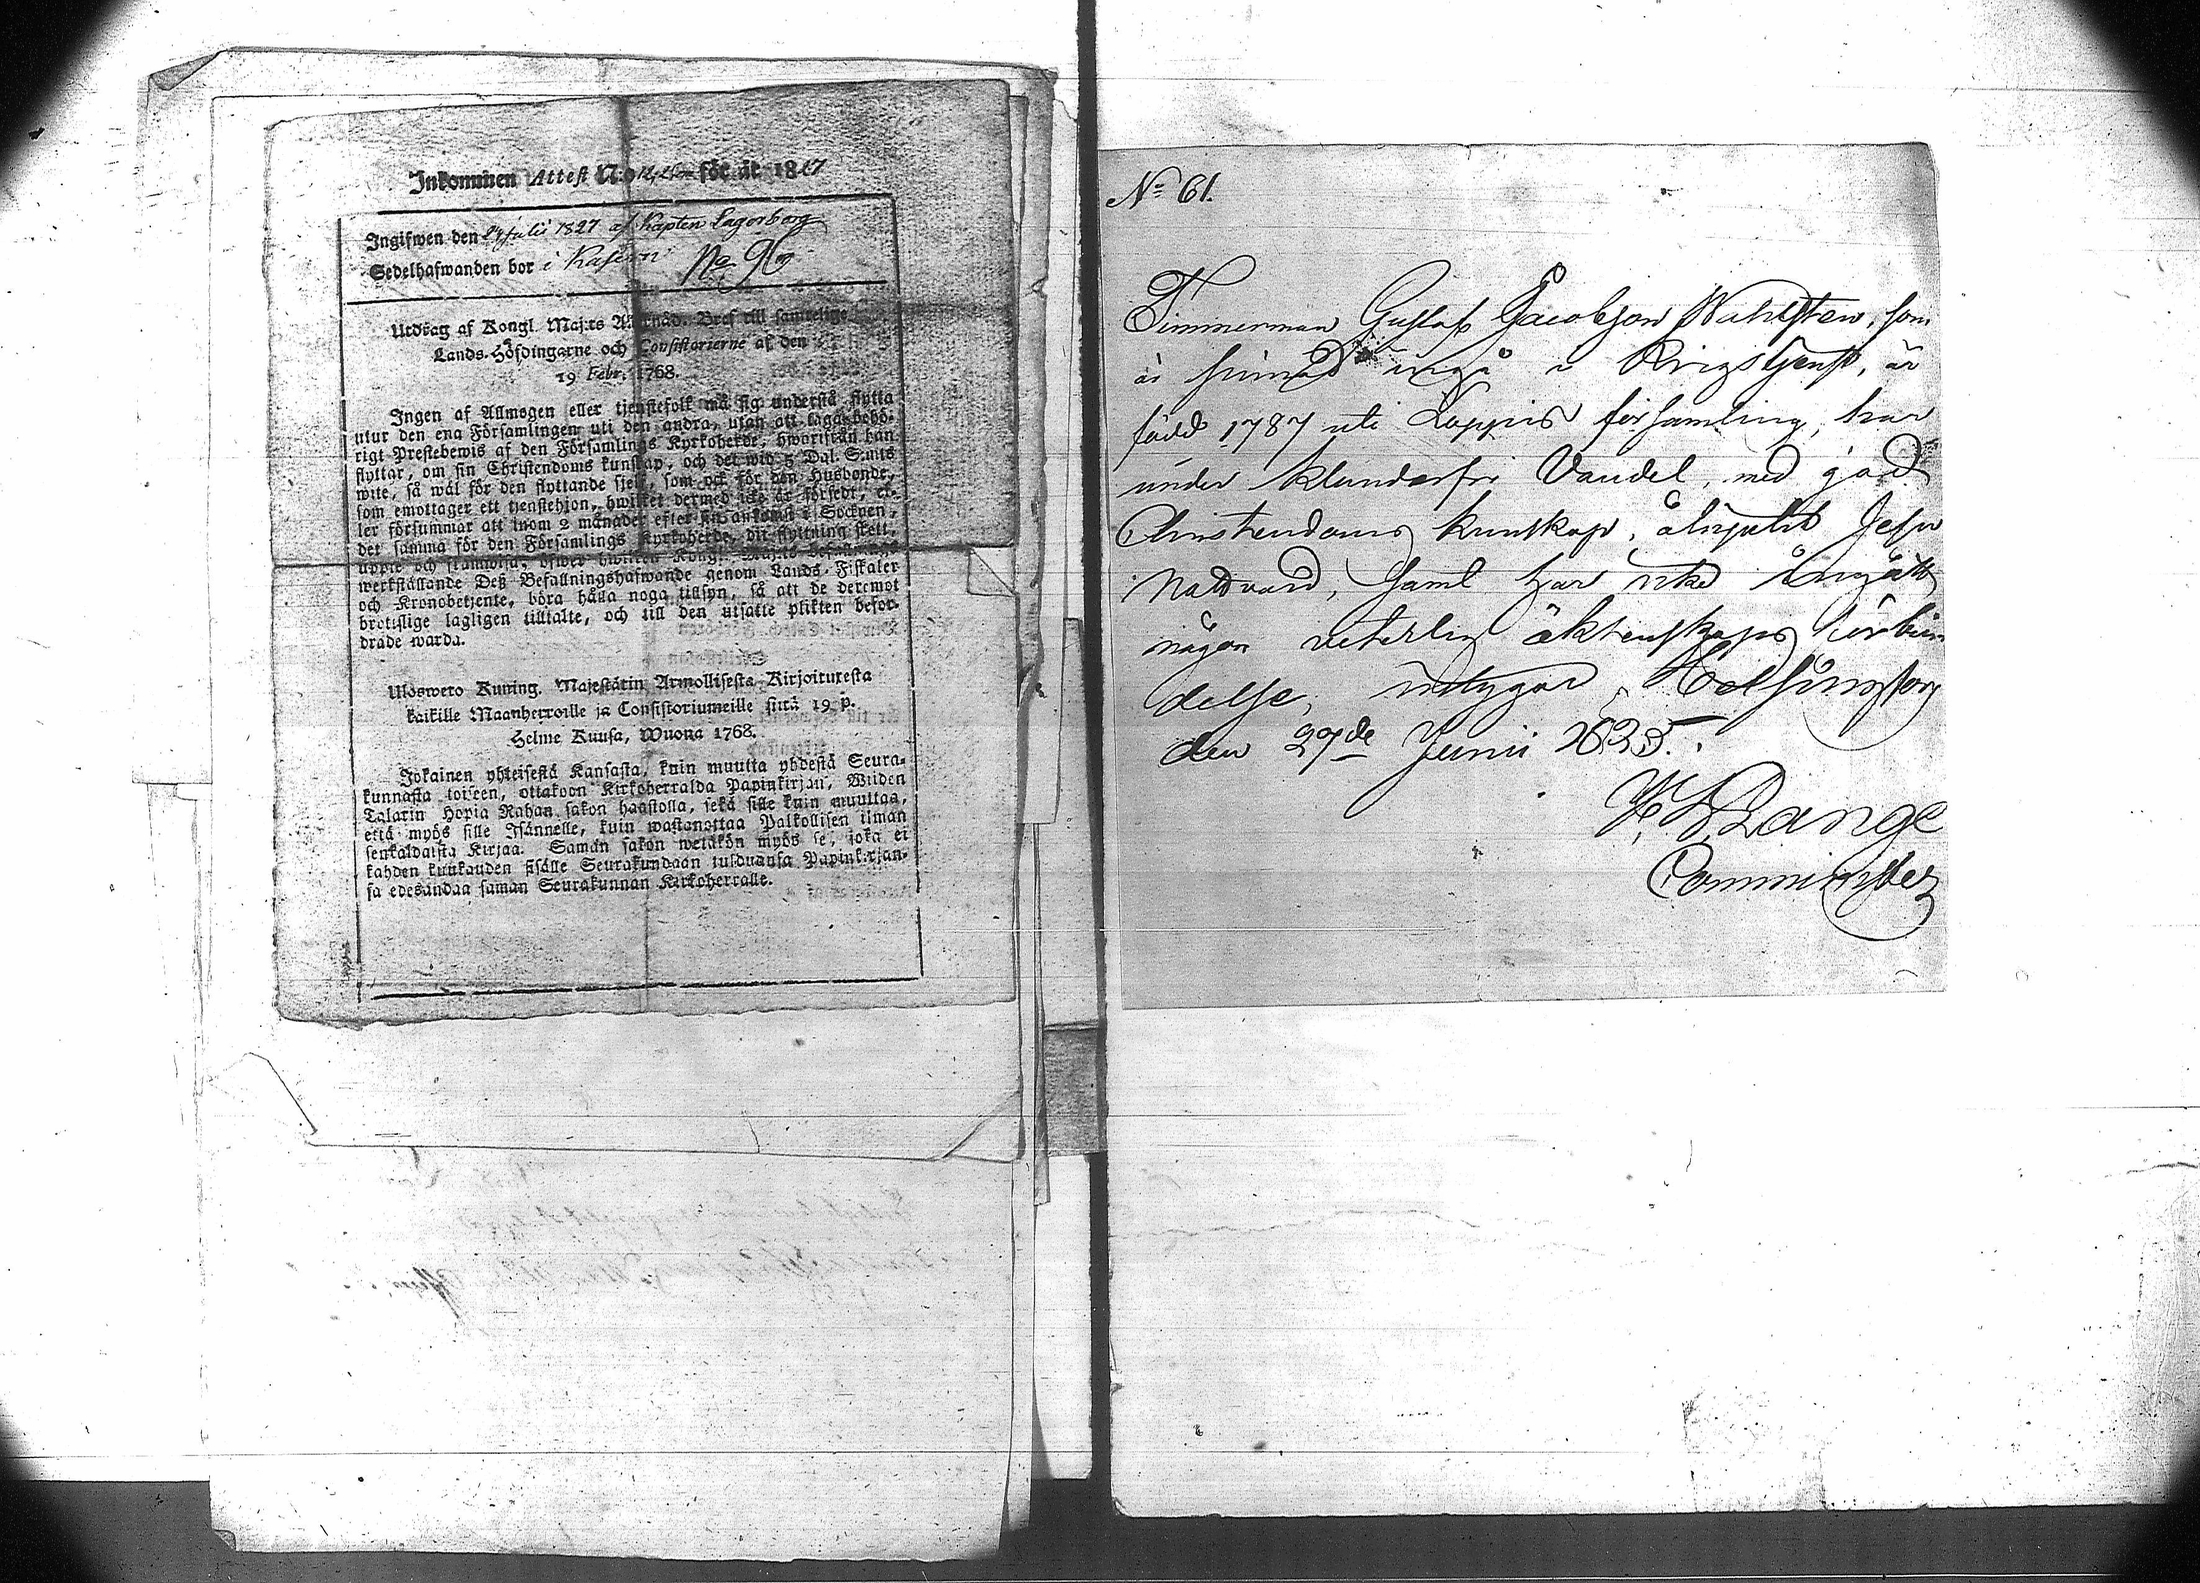 Inkommen Attest N:o för år 1827
Ingifwen den 24 Julii 1827 af Kapten Lagerborg
Sedelhafwanden bor i Kasern No 96
Utdrag af Kongl. Maj:ts Allernåd. Bref till samtelige
Lands-Höfdingarne och Consistorierne af den
19 Febr. 1768.
Ingen af Allmogen eller tjenstefolk må sig understå flytta
utur den ena Församlingen uti den andra, utan att taga behö-
rigt Prestebewis af den Församlings Kyrkoherde, hwarifrån han
flyttar, om sin Christendoms kunskap, och det wid 5 Dal. S:mts
wite, så wäl för den flyttande sjelf, som ock för den Husbonde,
som emottager ett tjenstehjon, hwilket dermed icke är försedt, el-
ler försummar att inom 2 månader efter sin ankomst i Socknen,
det samma för den Församlings Kyrkoherde, dit flyttning skett,
uppte och framwisa; öfwer hwilken Kongl. Maj:ts befallnings
werkställande Deß Befallningshafwande genom Lands-Fiskaler
och Kronobetjente, böra hålla noga tillsyn, så att de deremot
brottslige lagligen tilltalte, och till den utsatte plikten befor-
drade warda.
Uloswero Kuning. Majestätin Armollisesta Kirjoituxesta
kaikille Maanherroille ja Consistoriumeille siitä 19 p.
Helme Kuusa, Wuona 1768.
Jokainen yhteisestä Kansasta, kuin muutta yhdestä Seura-
kunnasta toiseen, ottakoon Kirkoherralda Papinkirjan, Wiiden
Talarin Hopia Rahan sakon haastolla, sekä sille kuin muuttaa,
että myös sille Isännelle, kuin wastanottaa Palkollisen ilman
senkaldaista Kirjaa. Saman sakon wetäkön myös se, joka ei
kahden kuukauden sisälle Seurakundaan tulduansa Papinkirjan-
sa edesandaa saman Seurakunnan Kirkoherralle.
N:o 61.
Timmerman Gustaf Jacobsson Wahlsten, som
är sinnad ingå i Krigstjenst, är
född 1787 uti Loppis församling, har
under klanderfri Vandel, med god
Christendoms kunskap, åtnjutit Jesu
Nattvard, samt har icke ingått
någon veterlig äktenskaps förbin
delse, intygar Helsingfors
den 27de Junii 1835.
Lange
Comminister